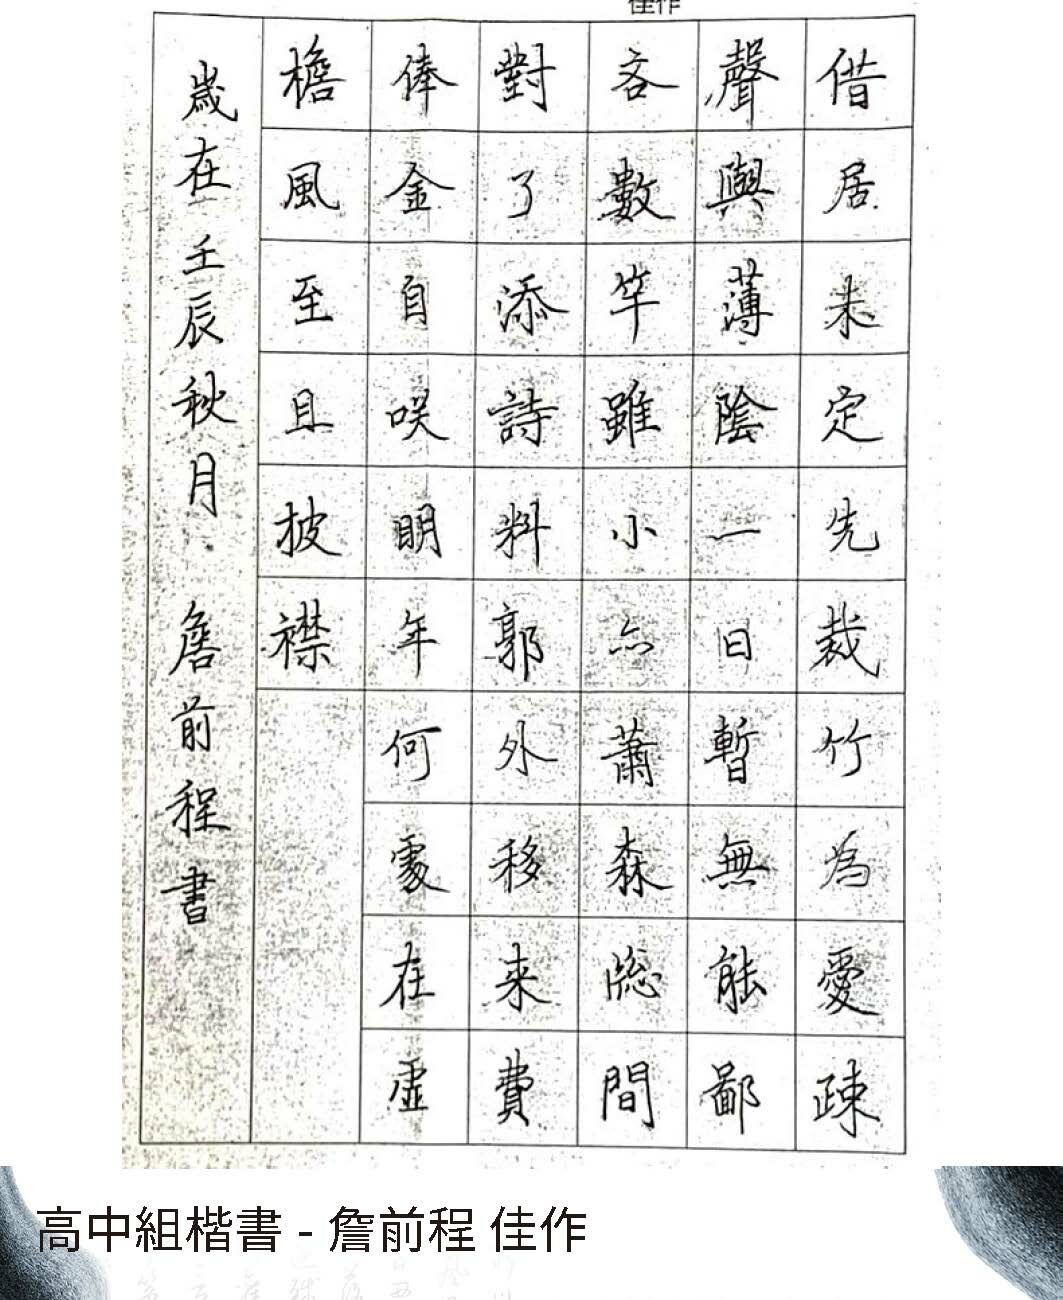 佳作
借居未定先裁竹為愛疎
聲與薄陰一日暫無能鄙
吝數竿雖小亦蕭森牕間
對了添詩料郭外移来費
俸金自咲明年何處在虛
檐風至且披襟
歳在壬辰秋月 詹前程書
高中組楷書 - 詹前程 佳作